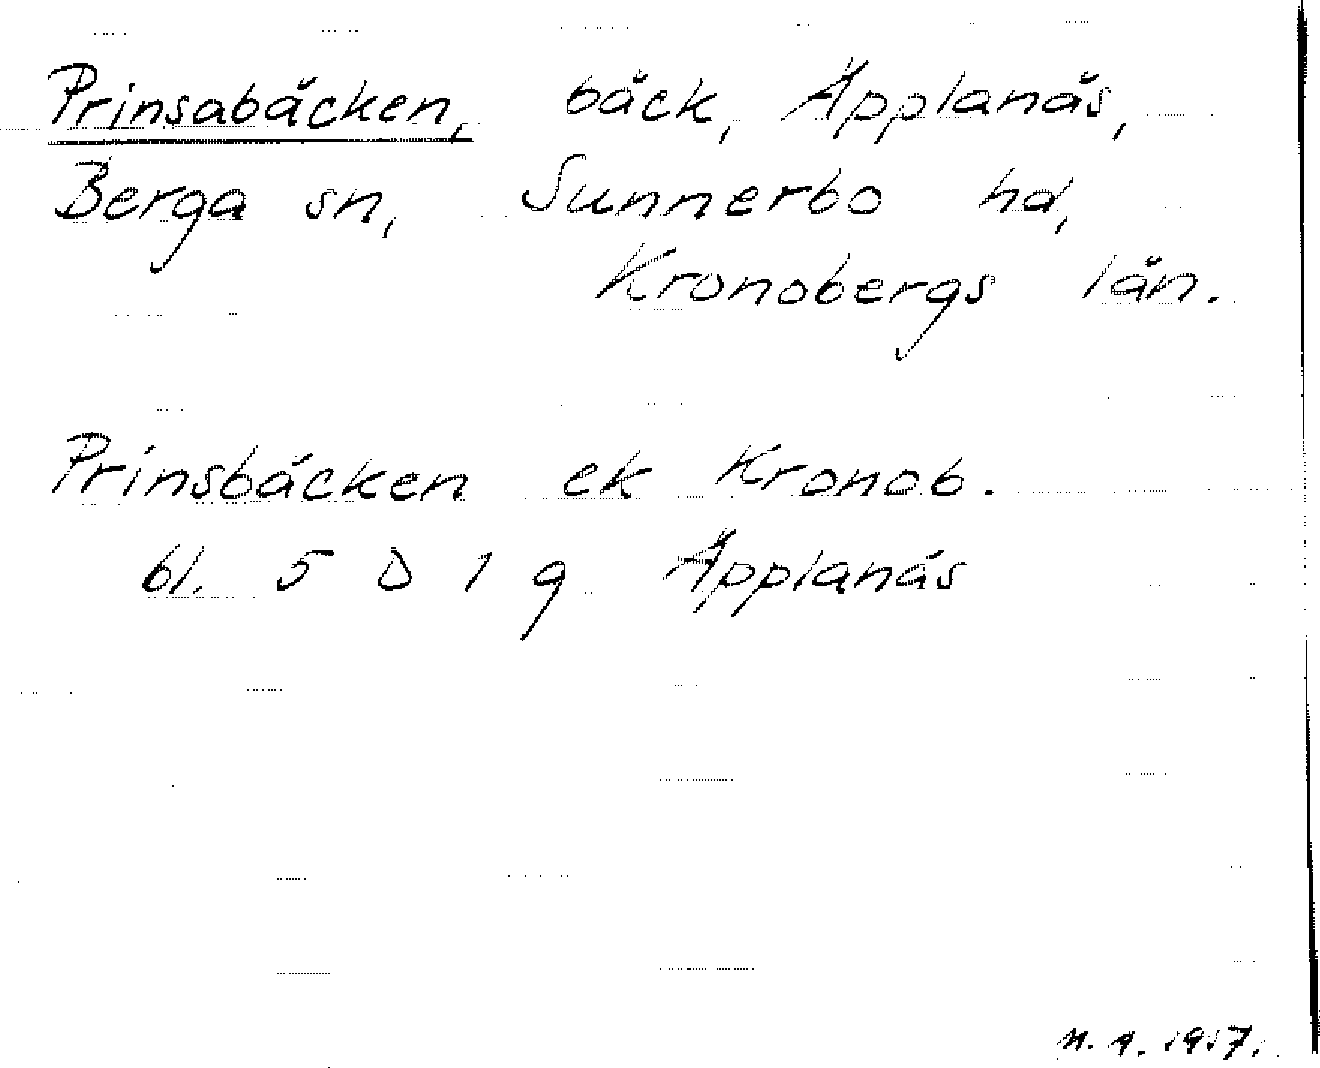 Prinsabäcken, bäck, Äpplanäs,
Berga sn, Sunnerbo hd,
Kronobergs län.
Prinsbäcken ek Kronob.
bl. 5 D 1 g Äpplanäs
1917.